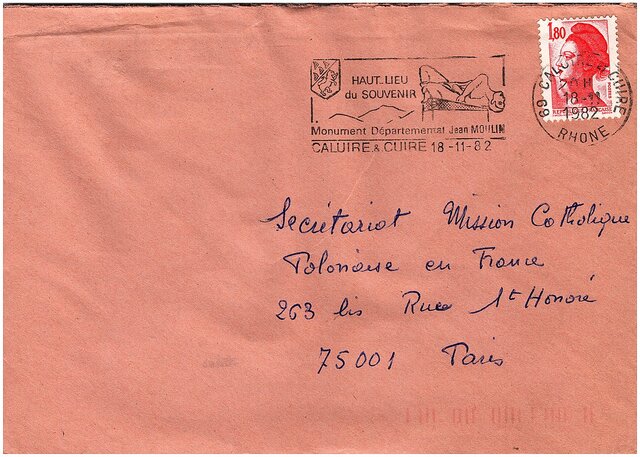 1,80
HAUT-LIEU
du SOUVENIR
Monument Départemental Jean MOULIN
CALUIRE & CUIRE 18-11-82
69 CALUIRE & CUIRE
18-11
1982
RHONE
Secrétariat Mission Catholique
Polonaise en France
263 bis Rue St Honoré
75001 Paris